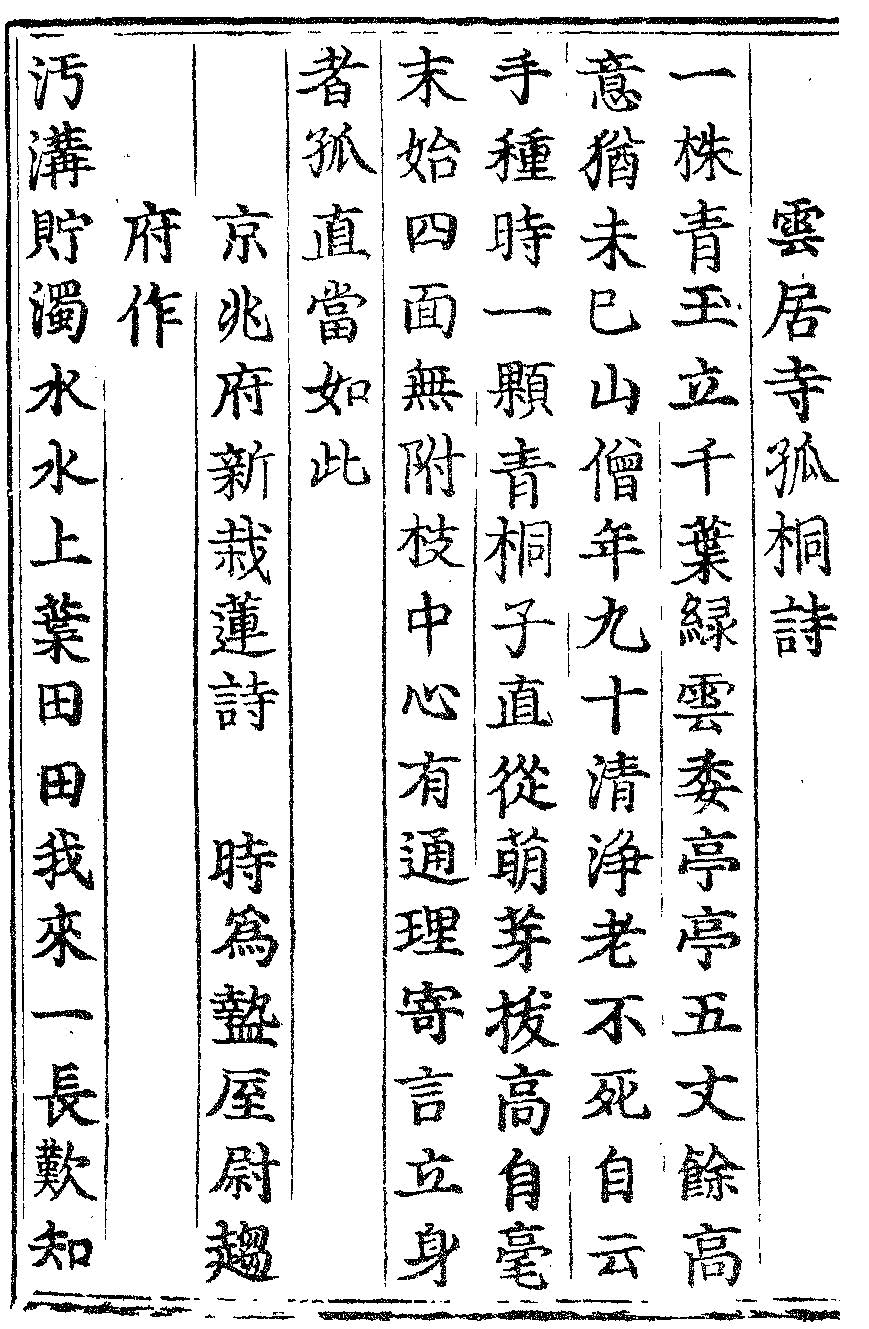 雲居寺孤桐詩
一株青玉立千葉綠雲委亭亭五丈餘高
意猶未已山僧年九十清浄老不死自云
手種時一顆青桐子直從萌芽拔高自毫
末始四面無附枝中心有通理寄言立身
者孤直當如此
京兆府新栽蓮詩　時爲盩厔尉趨
府作
汚溝貯濁水水上葉田田我來一長歎知